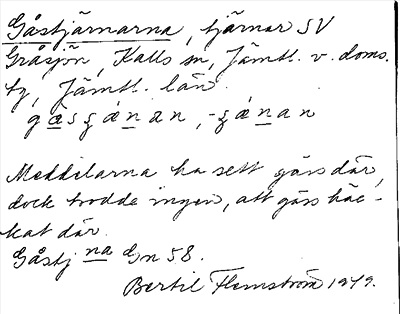 Gåstjärnarna, tjärnar SV
Gråsjön, Kalls sn, Jämtl. v. doms.
tg, Jämtl. län.
Meddelarna ha sett gäss där,
dock trodde ingen, att gäss häc-
kat där.
Gåstj na Gn 58.
Bertil Flemström 1979.